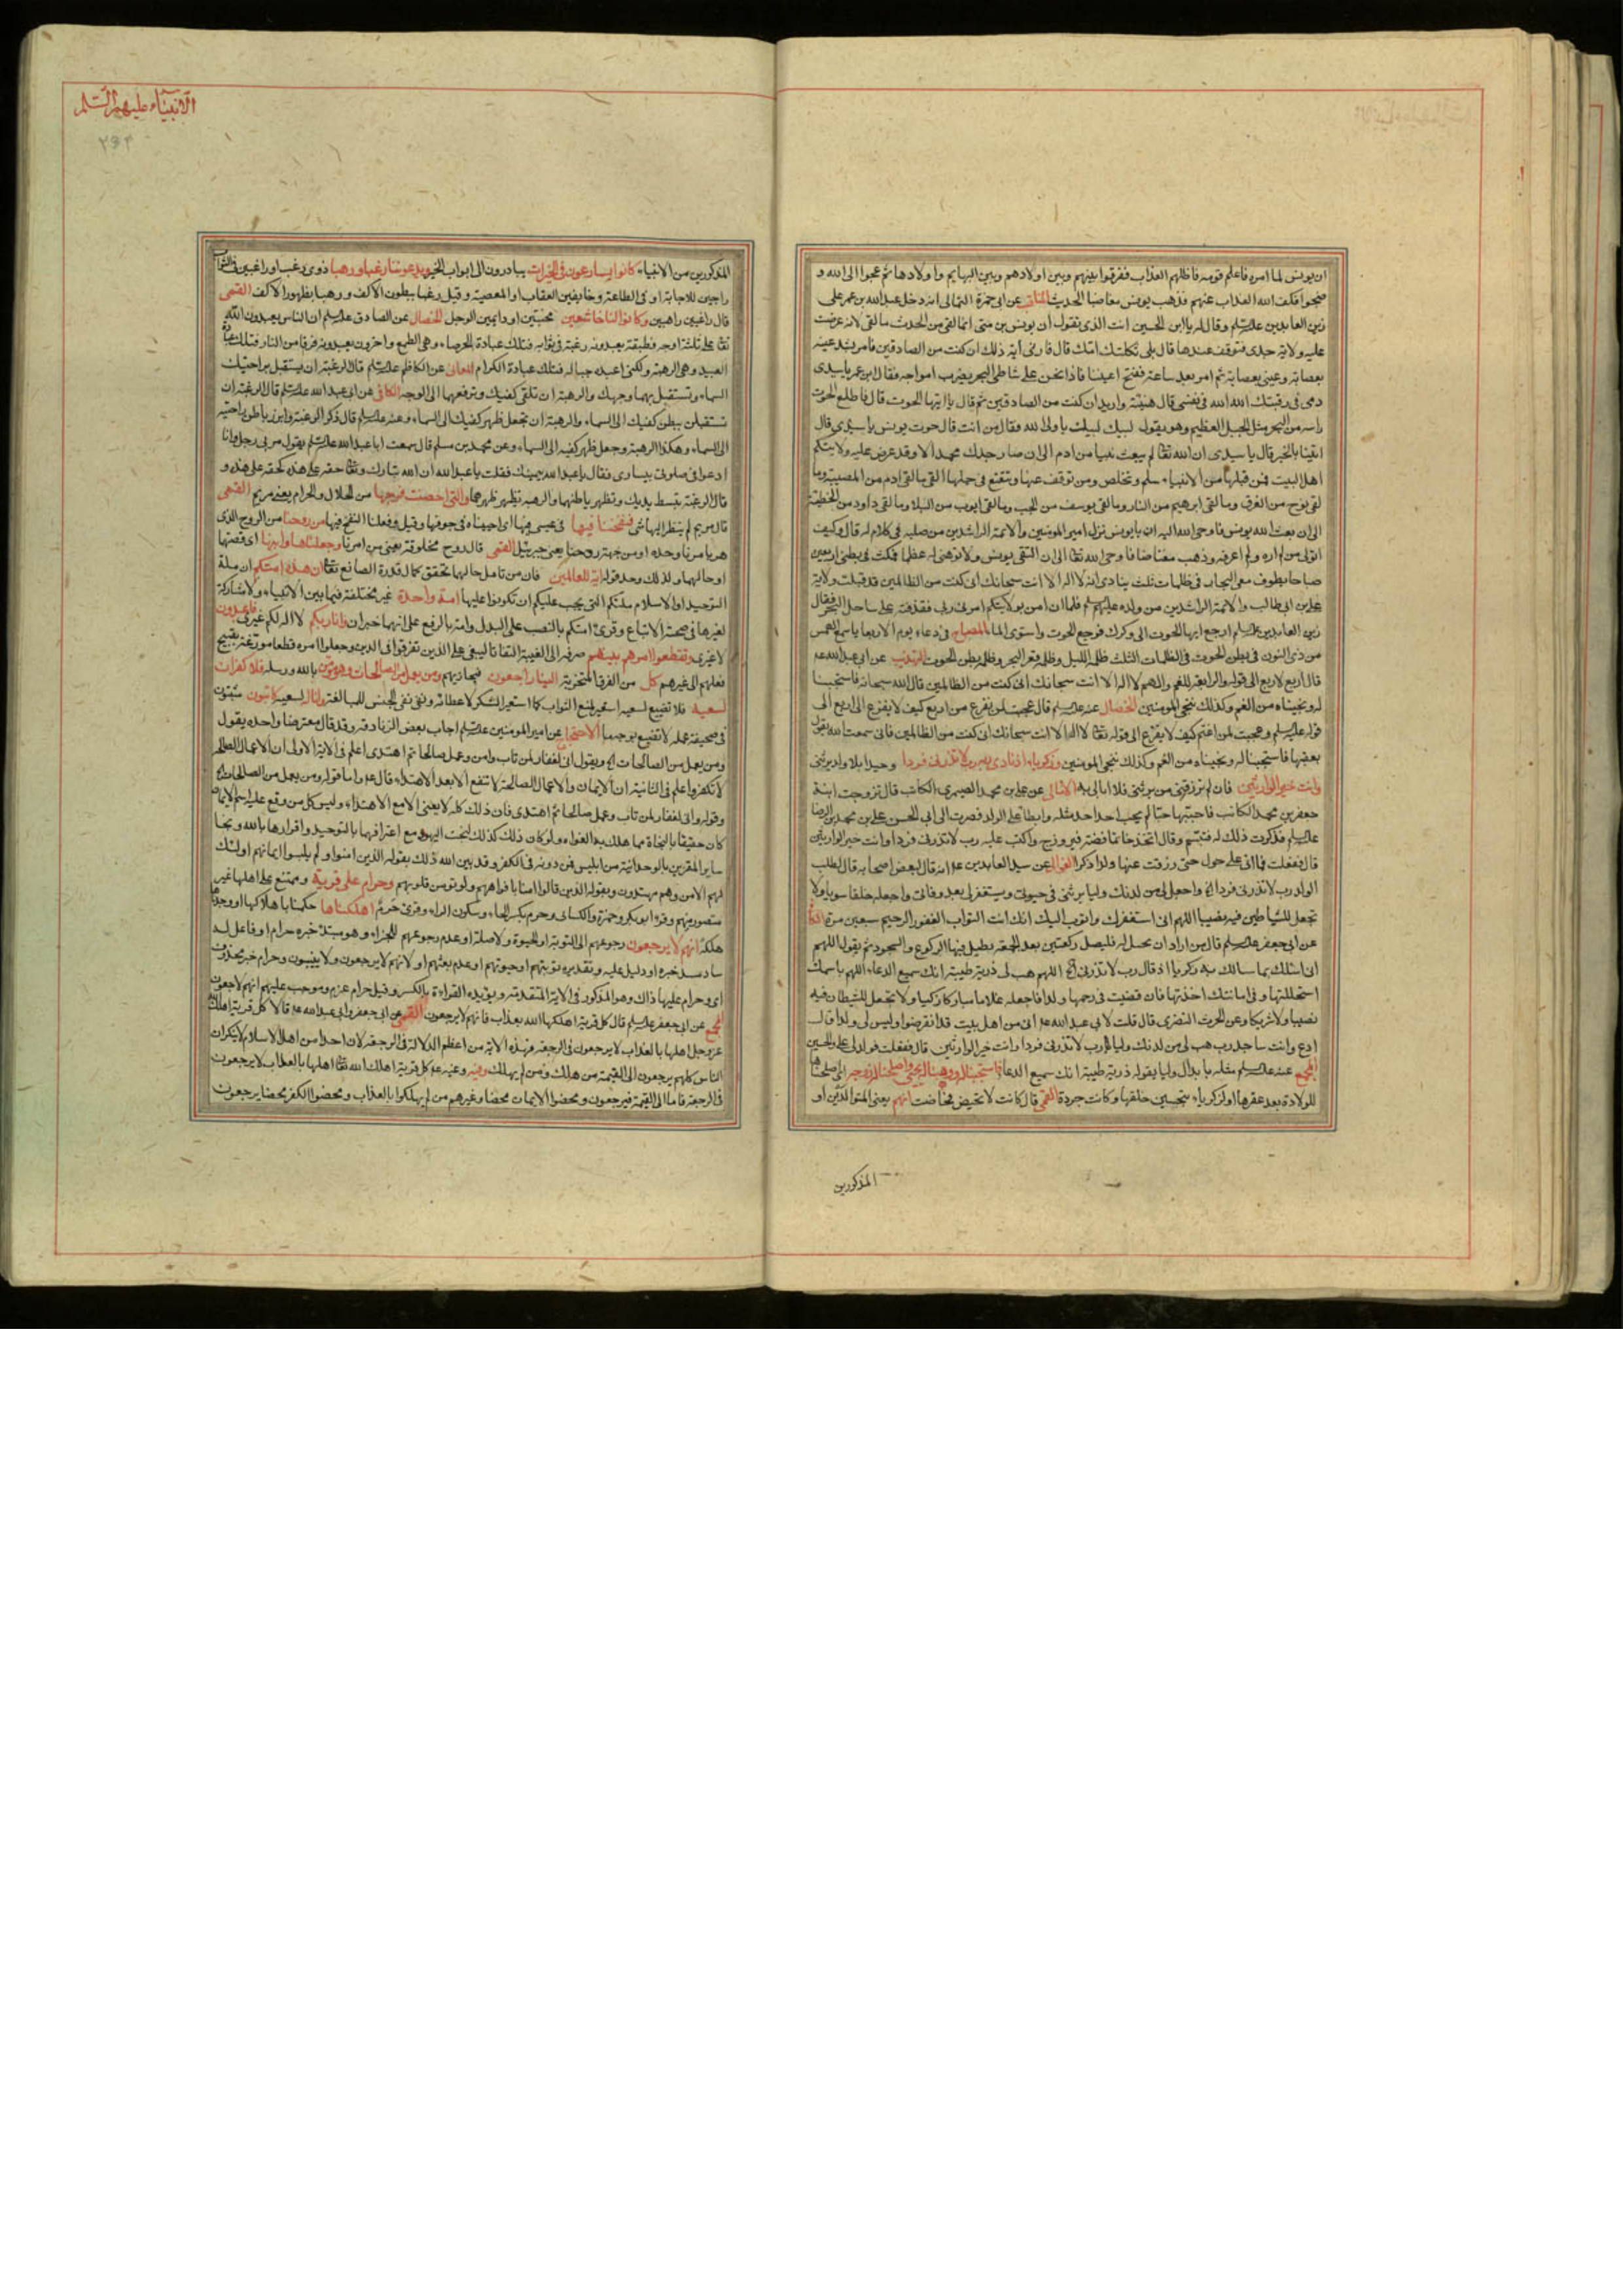 ان يونس لما امره فاعلم قومه فاظلهم العذاب ففرقوا بينهم وبين اولادهم وبين البهايم واولادها ثم عجوا الى الله و
ضجوا فكف الله العذاب عنهم فذهب يونس مغاضبا الحديث المناقب عن ابى حمزة الثمالى انه دخل عبد الله بن عمر على
زين العابدين عليه السلم وقال له يا ابن الحسين انت الذى تقول ان يونس بن متى انما لقى من الحوت ما لقى لانه عرضت
عليه ولاية جدى فتوقف عندها قال بلى ثكلتك امك قال فارنى آية ذلك ان كنت من الصادقين فامر بشد عينه
بعصابة وعينى بعصابة ثم امر بعد ساعة بفتح اعيننا فاذا نحن على شاطئ البحر يضرب امواجه فقال ابن عمر يا سيدى
دمى فى رقبتك الله الله فى نفسى قال هنيئة واريه ان كنت من الصادقين ثم قال يا ايتها الحوت قال فاطلع الحوت
راسه من البحر مثل الجبل العظيم وهو يقول لبيك لبيك يا ولى الله فقال من انت قال حوت يونس يا سيدى قال
انبئنا بالخبر قال يا سيدى ان الله تعالى لم يبعث نبيا من ادم الى ان صار جدك محمد الا وقد عرض عليه ولايتكم
اهل البيت فمن قبلها من الانبياء سلم وتخلص ومن توقف عنها وتتعتع فى حملها لقى ما لقى ادم من المصيبة وما
لقى نوح من الغرق وما لقى ابرهيم من النار وما لقى يوسف من الجب وما لقى ايوب من البلاء وما لقى داود من الخطيئة
الى ان بعث الله يونس فاوحى الله اليه ان يا يونس تول امير المومنين والائمة الراشدين من صلبه فى كلام له قال وكيف
اتولى من لم اره ولم اعرفه وذهب مغتاضا فاوحى الله تعالى الى ان التقمى يونس ولا توهنى له عظما فمكث فى بطنى اربعين
صباحا يطوف معى البحار فى ظلمات ثلث ينادى انه لا اله الا انت سبحانك انى كنت من الظالمين قد قبلت ولاية
على بن ابى طالب والائمة الراشدين من ولده عليهم السلم فلما ان امن بولايتكم امرنى ربى فقذفته على ساحل البحر فقال
زين العابدين عليه السلم ارجع ايها الحوت الى وكرك فرجع الحوت واستوى الماء المصباح فى دعاء يوم الاربعا يا سمع الهمس
من ذى النون فى بطن الحوت فى الظلمات الثلث ظلمة الليل وظلمة قعر البحر وظلمة بطن الحوت التهذيب عن ابى عبد الله عه
قال اربع لاربع الى قوله والرابعة للغم والهم لا اله الا انت سبحانك انى كنت من الظالمين قال الله سبحانه فاستجبنا
له ونجيناه من الغم وكذلك ننجى المومنين الخصال عنه عليه السلم قال عجبت لمن يفزع من اربع كيف لا يفزع الى اربع الى
قوله عليه السلم وعجبت لمن اغتم كيف لا يفزع الى قوله تعالى لا اله الا انت سبحانك انى كنت من الظالمين فانى سمعت الله يقول
بعقبها فاستجبنا له ونجيناه من الغم وكذلك ننجى المومنين وزكريا اذ نادى ربه رب لا تذرنى فردا وحيدا بلا ولد يرثنى
وانت خير الوارثين فان لم ترزقنى من يرثنى فلا ابالى به الامالى عن على بن محمد الصيمرى الكاتب قال تزوجت ابنة
جعفر بن محمد الكاتب فاحببتها حبا لم يحب احد احدا مثله وابطا على الولد فصرت الى ابى الحسن على بن محمد بن الرضا
عليه السلم فذكرت ذلك له فتبسم وقال اتخذ خاتما فضة فيروزج واكتب عليه رب لا تذرنى فردا وانت خير الوارثين
قال ففعلت فما اتى على حول حتى رزقت منها ولدا ذكرا العوالى عن سيد العابدين عه انه قال لبعض اصحابه قال لطلب
الولد رب لا تذرنى فردا الخ واجعل لى من لدنك وليا يرثنى فى حيوتى ويستغفر لى بعد وفاتى واجعله خلقا سويا ولا
تجعل للشيطان فيه نصيبا اللهم انى استغفرك واتوب اليك انك انت التواب الغفور الرحيم سبعين مرة
عن ابى جعفر عليه السلم قال من اراد ان يحبل له فليصل ركعتين بعد الجمعة يطيل فيها الركوع والسجود ثم يقول اللهم
انى اسئلك بما سالك به زكريا اذ قال رب لا تذرنى الخ اللهم هب لى ذرية طيبة انك سميع الدعاء اللهم باسمك
استحللتها وفى امانتك اخذتها فان قضيت فى رحمها ولدا فاجعله غلاما مباركا زكيا ولا تجعل للشيطان فيه
نصيبا ولا شركا وعن الحرث النضرى قال قلت لابى عبد الله عه انى من اهل بيت قد انقرضوا وليس لى ولد قال
ادع وانت ساجد رب هب لى من لدنك وليا رب لا تذرنى فردا وانت خير الوارثين قال ففعلت فولد لى على والحسين
المجمع عنه عليه السلم مثله بابدال وليا بقوله ذرية طيبة انك سميع الدعاء فاستجبنا له ووهبنا له يحيى واصلحنا له زوجه اى اصلحناها
للولادة بعد عقرها او لزكريا بتحسين خلقها وكانت جردة القمى قال كانت لا تحيض فحاضت انهم يعنى المتوالدين او
المذكورين
الانبياء عليهم السلم
٢٩٣
المذكورين من الانبياء كانوا يسارعون فى الخيرات يبادرون الى ابواب الخير ويدعوننا رغبا ورهبا ذوى رغب او راغبين فى الثواب
راجين للاجابة او فى الطاعة وخايفين العقاب او المعصية وقيل رغبا ببطون الاكف ورهبا بظهور الاكف القمى
قال راغبين راهبين وكانوا لنا خاشعين مخبتين او دايمين الوجل الخصال عن الصادق عليه السلم ان الناس يعبدون الله
تعالى على ثلثة اوجه فطبقة يعبدونه رغبة فى ثوابه فتلك عبادة الحرصاء وهى الطمع واخرون يعبدونه فرقا من النار فتلك عبادة
العبيد وهى الرهبة ولكنى اعبده حبا له فتلك عبادة الكرام المعانى عن الكاظم عليه السلم قال الرغبة ان يستقبل براحتيك
السماء وتستقبل بهما وجهك والرهبة ان تلقى كفيك وترفعهما الى الوجه الكافى عن ابى عبد الله عليه السلم قال الرغبة ان
تستقبل ببطن كفيك الى السماء والرهبة ان تجعل ظهر كفيك الى السماء وعنه عليه السلم قال ذكر الرغبة وابرز باطن راحتيه
الى السماء وهكذا الرهبة وجعل ظهر كفيه الى السماء وعن محمد بن مسلم قال سمعت ابا عبد الله عليه السلم يقول مر بى رجل وانا
ادعو فى صلوتى بيسارى فقال يا عبد الله بيمينك فقلت يا عبد الله ان الله تبارك وتعالى حقه على هذه كحقه على هذه و
قال الرغبة تبسط يديك وتظهر باطنهما والرهبة تظهر ظهرهما والتى احصنت فرجها من الحلال والحرام يعنى مريم القمى
قال مريم لم ينظر اليها شئ فنفخنا فيها فى عيسى فيها اى احييناه فى جوفها وقيل وفعلنا النفخ فيها من روحنا من الروح الذى
هو بامرنا وحده او من جهة روحنا يعنى جبرئيل القمى قال روح مخلوقة يعنى من امرنا وجعلناها وابنها اى قصتها
او حالهما ولذلك وحد قوله اية للعالمين فان من تامل حالهما تحقق كمال قدرة الصانع تعالى ان هذه امتكم ان ملة
التوحيد او الاسلام ملتكم التى يجب عليكم ان تكونوا عليها امة واحدة غير مختلفة فيما بين الانبياء ولا مشاركة
لغيرها فى صحة الاتباع وقرئ امتكم بالنصب على البدل وامة بالرفع على انهما خبران وانا ربكم لا اله لكم غيرى فاعبدون
لا غيرى وتقطعوا امرهم بينهم صرفه الى الغيبة التفاتا لينعى على الذين تفرقوا فى الدين وجعلوا امره قطعا موزعة بقبيح
فعلهم الى غيرهم كل من الفرق المتحزبة الينا راجعون فنجازيهم ومن يعمل من الصالحات وهو مؤمن بالله ورسله فلا كفران
لسعيه فلا تضييع لسعيه استعير لمنع الثواب كما استعير الشكر لاعطائه ونفى نفى الجنس للمبالغة وانا له لسعيه كاتبون مثبتون
فى صحيفة عمله لا تضيع بوجه ما الاحتجاج عن امير المومنين عليه السلم اجاب بعض الزنادقة وقد قال معترضا واجده يقول
ومن يعمل من الصالحات الخ ويقول انى لغفار لمن تاب وامن وعمل صالحا ثم اهتدى اعلم فى الاية الاولى ان الاعمال الصالحة
لا تكفر واعلم فى الثانية ان الايمان والاعمال الصالحة لا تنفع الا بعد الاهتداء قال عه واما قوله ومن يعمل من الصالحات الخ
وقوله وانى لغفار لمن تاب وعمل صالحا ثم اهتدى فان ذلك كله لا يغنى الا مع الاهتداء وليس كل من وقع عليه اسم الايمان
كان حقيقا بالنجاة مما هلك به الغواة ولو كان ذلك كذلك لنجت اليهود مع اعترافها بالتوحيد واقرارها بالله ونجا
ساير المقرين بالوحدانية من ابليس فمن دونه فى الكفر وقد بين الله ذلك بقوله الذين امنوا ولم يلبسوا ايمانهم اولئك
لهم الامن وهم مهتدون وبقوله الذين قالوا امنا بافواههم ولم تومن قلوبهم وحرام على قرية وممتنع على اهلها غير
متصور منهم وقرء ابو بكر وحمزة والكسائى وحرم بكسر الحاء وسكون الراء وقرئ حرم اهلكناها حكمنا باهلاكها او وجدناها
هلكة انهم لا يرجعون رجوعهم الى التوبة او الحيوة ولا صلة او عدم رجوعهم للجزاء وهو مبتدء خبره حرام او فاعل له
ساد مسد خبره او دليل عليه وتقديره توبتهم او حيوتهم او عدم بعثهم او لانهم لا يرجعون ولا ينيبون وحرام خبر محذوف
اى وحرام عليها ذاك وهو المذكور فى الاية المتقدمة ويؤيده القراءة بالكسر وقيل حرام عزم وموجب عليهم انهم لا يرجعون
المجمع عن ابى جعفر عليه السلم قال كل قرية اهلكها الله بعذاب فانهم لا يرجعون القمى عن ابى جعفر وابى عبد الله عه قالا كل قرية اهلك الله
عز وجل اهلها بالعذاب لا يرجعون فى الرجعة فهذه الاية من اعظم الدلالة فى الرجعة لان احدا من اهل الاسلام لا ينكر ان
الناس كلهم يرجعون الى القيمة من هلك ومن لم يهلك وفيه وعنه عه كل قرية اهلك الله تعالى اهلها بالعذاب لا يرجعون
فى الرجعة فاما الى القيمة فيرجعون ومحضوا الايمان محضا وغيرهم من لم يهلكوا بالعذاب ومحضوا الكفر محضا يرجعون